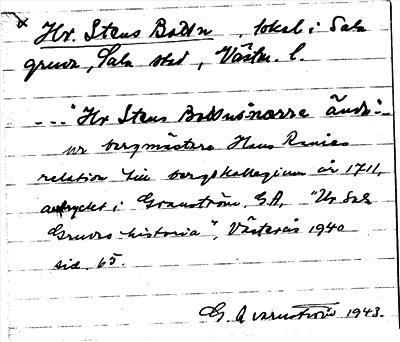 Hr. Stens Botten, lokal i Sala
gruva, Sala stad, Västm. l.
--- "Hr Stens Bottns norre ände" -
ur bergmästare Hans Ranies
relation till bergskollegium år 1711,
avtryckt i Granström, G.A, "Ur Sala
Gruvas historia", Västerås 1940
sid. 65.
G. Qvarnström 1943.